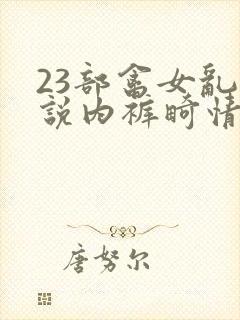 23部畜女乱
説内裤畸情
唐努尔